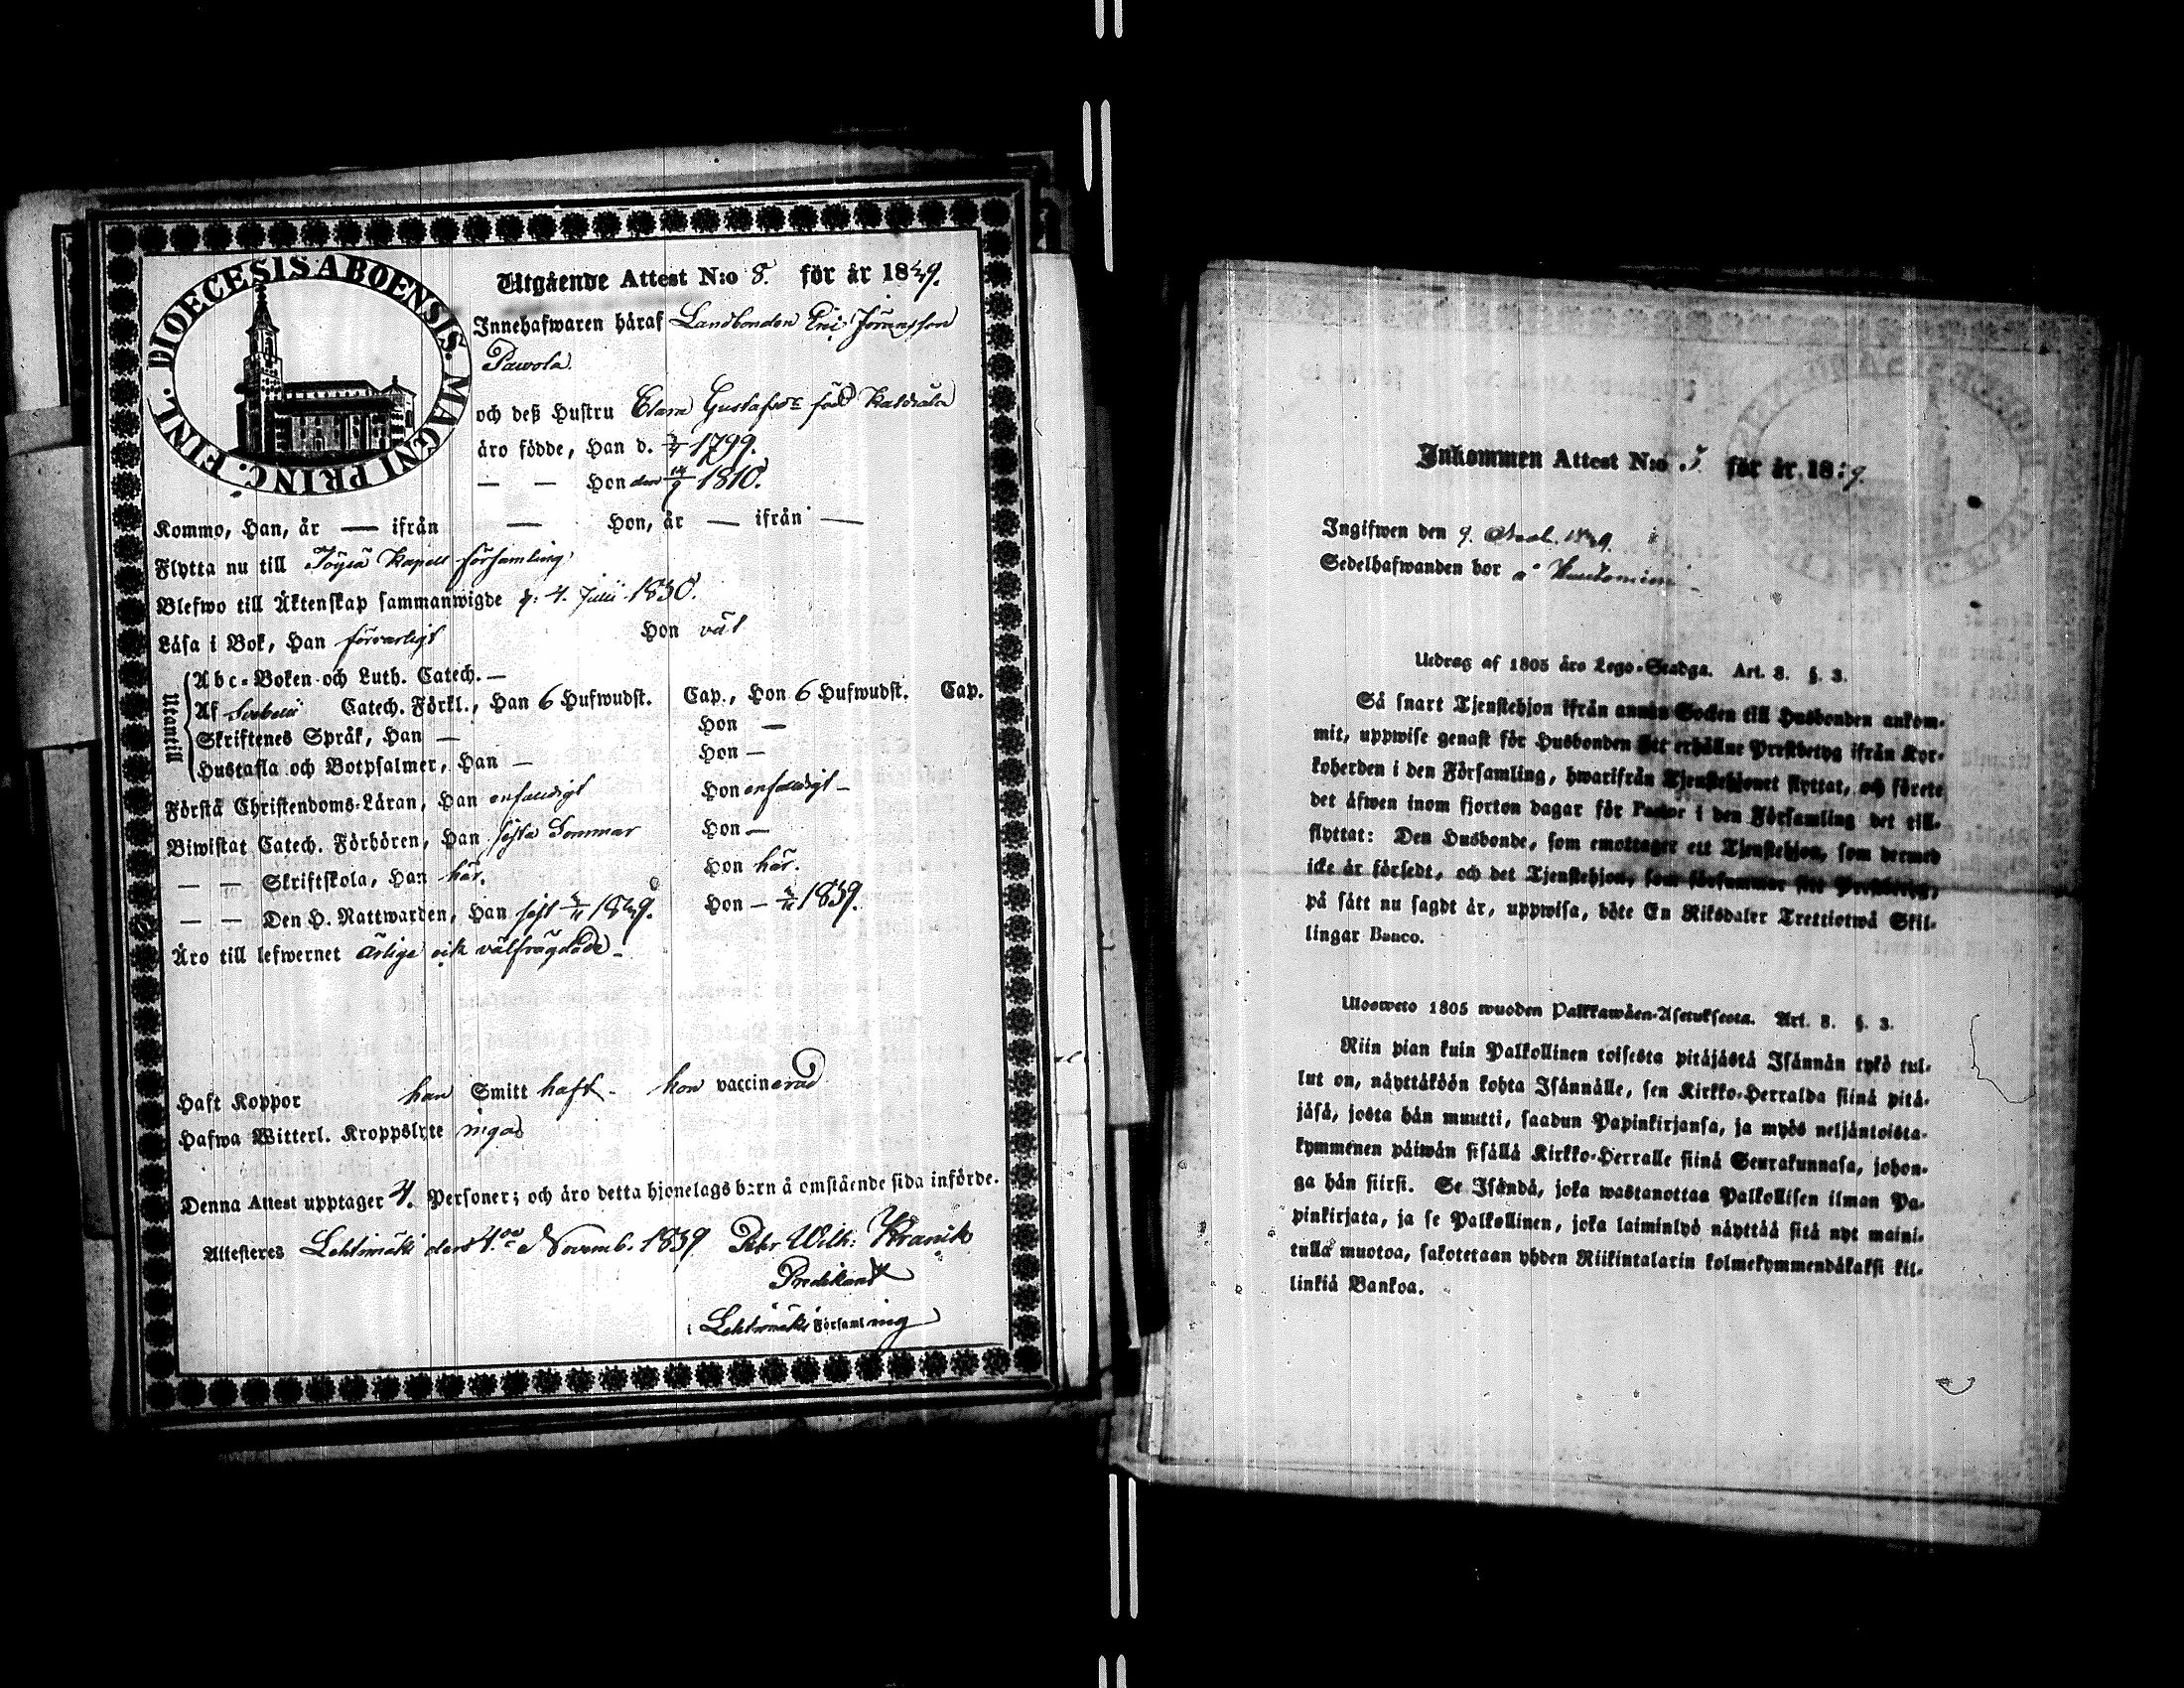 DIOECESIS ABOENSIS. MAGNI PRINC. FINL.
Utgående Attest N:o 8. för år 1839.
Innehafwaren häraf Landbonden Eric Jöransson
Pawola.
och deß Hustru Clara Gustafsdr född
äro födde, Han d. 1799.
— — Hon den 14/9 1810.
Kommo, Han, år — ifrån — Hon, år — ifrån —
Flytta nu till Töysä Kapell församling
Blefwo till Äktenskap sammanwigde d. 4. Julii 1830.
Läsa i Bok, Han försvarligt Hon väl
Utantill
Abc-Boken och Luth. Catech. —
Af Svebelii Catech. Förkl., Han 6 Hufwudst. Cap., Hon 6 Hufwudst. Cap.
Skriftenes Språk, Han — Hon —
Hustafla och Botpsalmer, Han — Hon —
Förstå Christendoms-Läran, Han enfaldigt Hon enfaldigt —
Biwistat Catech. Förhören, Han sista Sommar Hon —
— — Skriftskola, Han här. Hon här.
— — Den H. Nattwarden, Han sist 3/11 1839. Hon — 3/11 1839.
Äro till lefwernet ärlige och välfrägdade —
Haft Koppor han Smitt haft — hon vaccinerad
Hafwa Witterl. Kroppslyte inga
Denna Attest upptager 4. Personer; och äro detta hjonelags barn å omstående sida införde.
Attesteres Lehtimäki den 4:de Novemb. 1839 Petr Wilh: Kranck
Predikant
i Lehtimäki Församling
Inkommen Attest N:o 5 för år 1839.
Ingifwen den 9. Novb. 1839.
Sedelhafwanden bor å
Utdrag af 1805 års Lego-Stadga. Art. 8. §. 3.
Så snart Tjenstehjon ifrån annan Socken till Husbonden ankom-
mit, uppwise genast för Husbonden sitt erhållne Prestbetyg ifrån Kyr-
koherden i den Församling, hwarifrån Tjenstehjonet flyttat, och förete
det äfwen inom fjorton dagar för Pastor i den Församling det till-
flyttat: Den Husbonde, som emottager ett Tjenstehjon, som dermed
icke är försedt, och det Tjenstehjon, som försummar sitt Prestbetyg,
på sätt nu sagdt är, uppwisa, böte En Riksdaler Trettiotwå Skil-
lingar Banco.
Ulosweto 1805 wuoden Palkkawäen-Asetuksesta. Art. 8. §. 3.
Niin pian kuin Palkollinen toisesta pitäjästä Isännän tykö tul-
lut on, näyttäköön kohta Isännälle, sen Kirkko-Herralda siinä pitä-
jäsä, josta hän muutti, saadun Papinkirjansa, ja myös neljäntoista-
kymmenen päiwän sisällä Kirkko-Herralle siinä Seurakunnasa, johon-
ga hän siirsi. Se Isändä, joka wastanottaa Palkollisen ilman Pa-
pinkirjata, ja se Palkollinen, joka laiminlyö näyttää sitä nyt maini-
tulla muotoa, sakotetaan yhden Riikintalarin kolmekymmendäkaksi kil-
linkiä Bankoa.